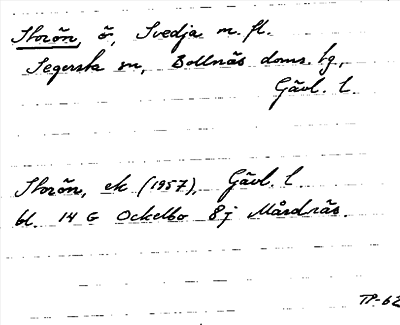 Storön, ö, Svedja m. fl.
Segersta sn, Bollnäs doms. hg.,
Gävl. l.
Storön, ek (1957), Gävl. l.
bl. 14 G Ockelbo 8 j Mårdnäs.
TP-62